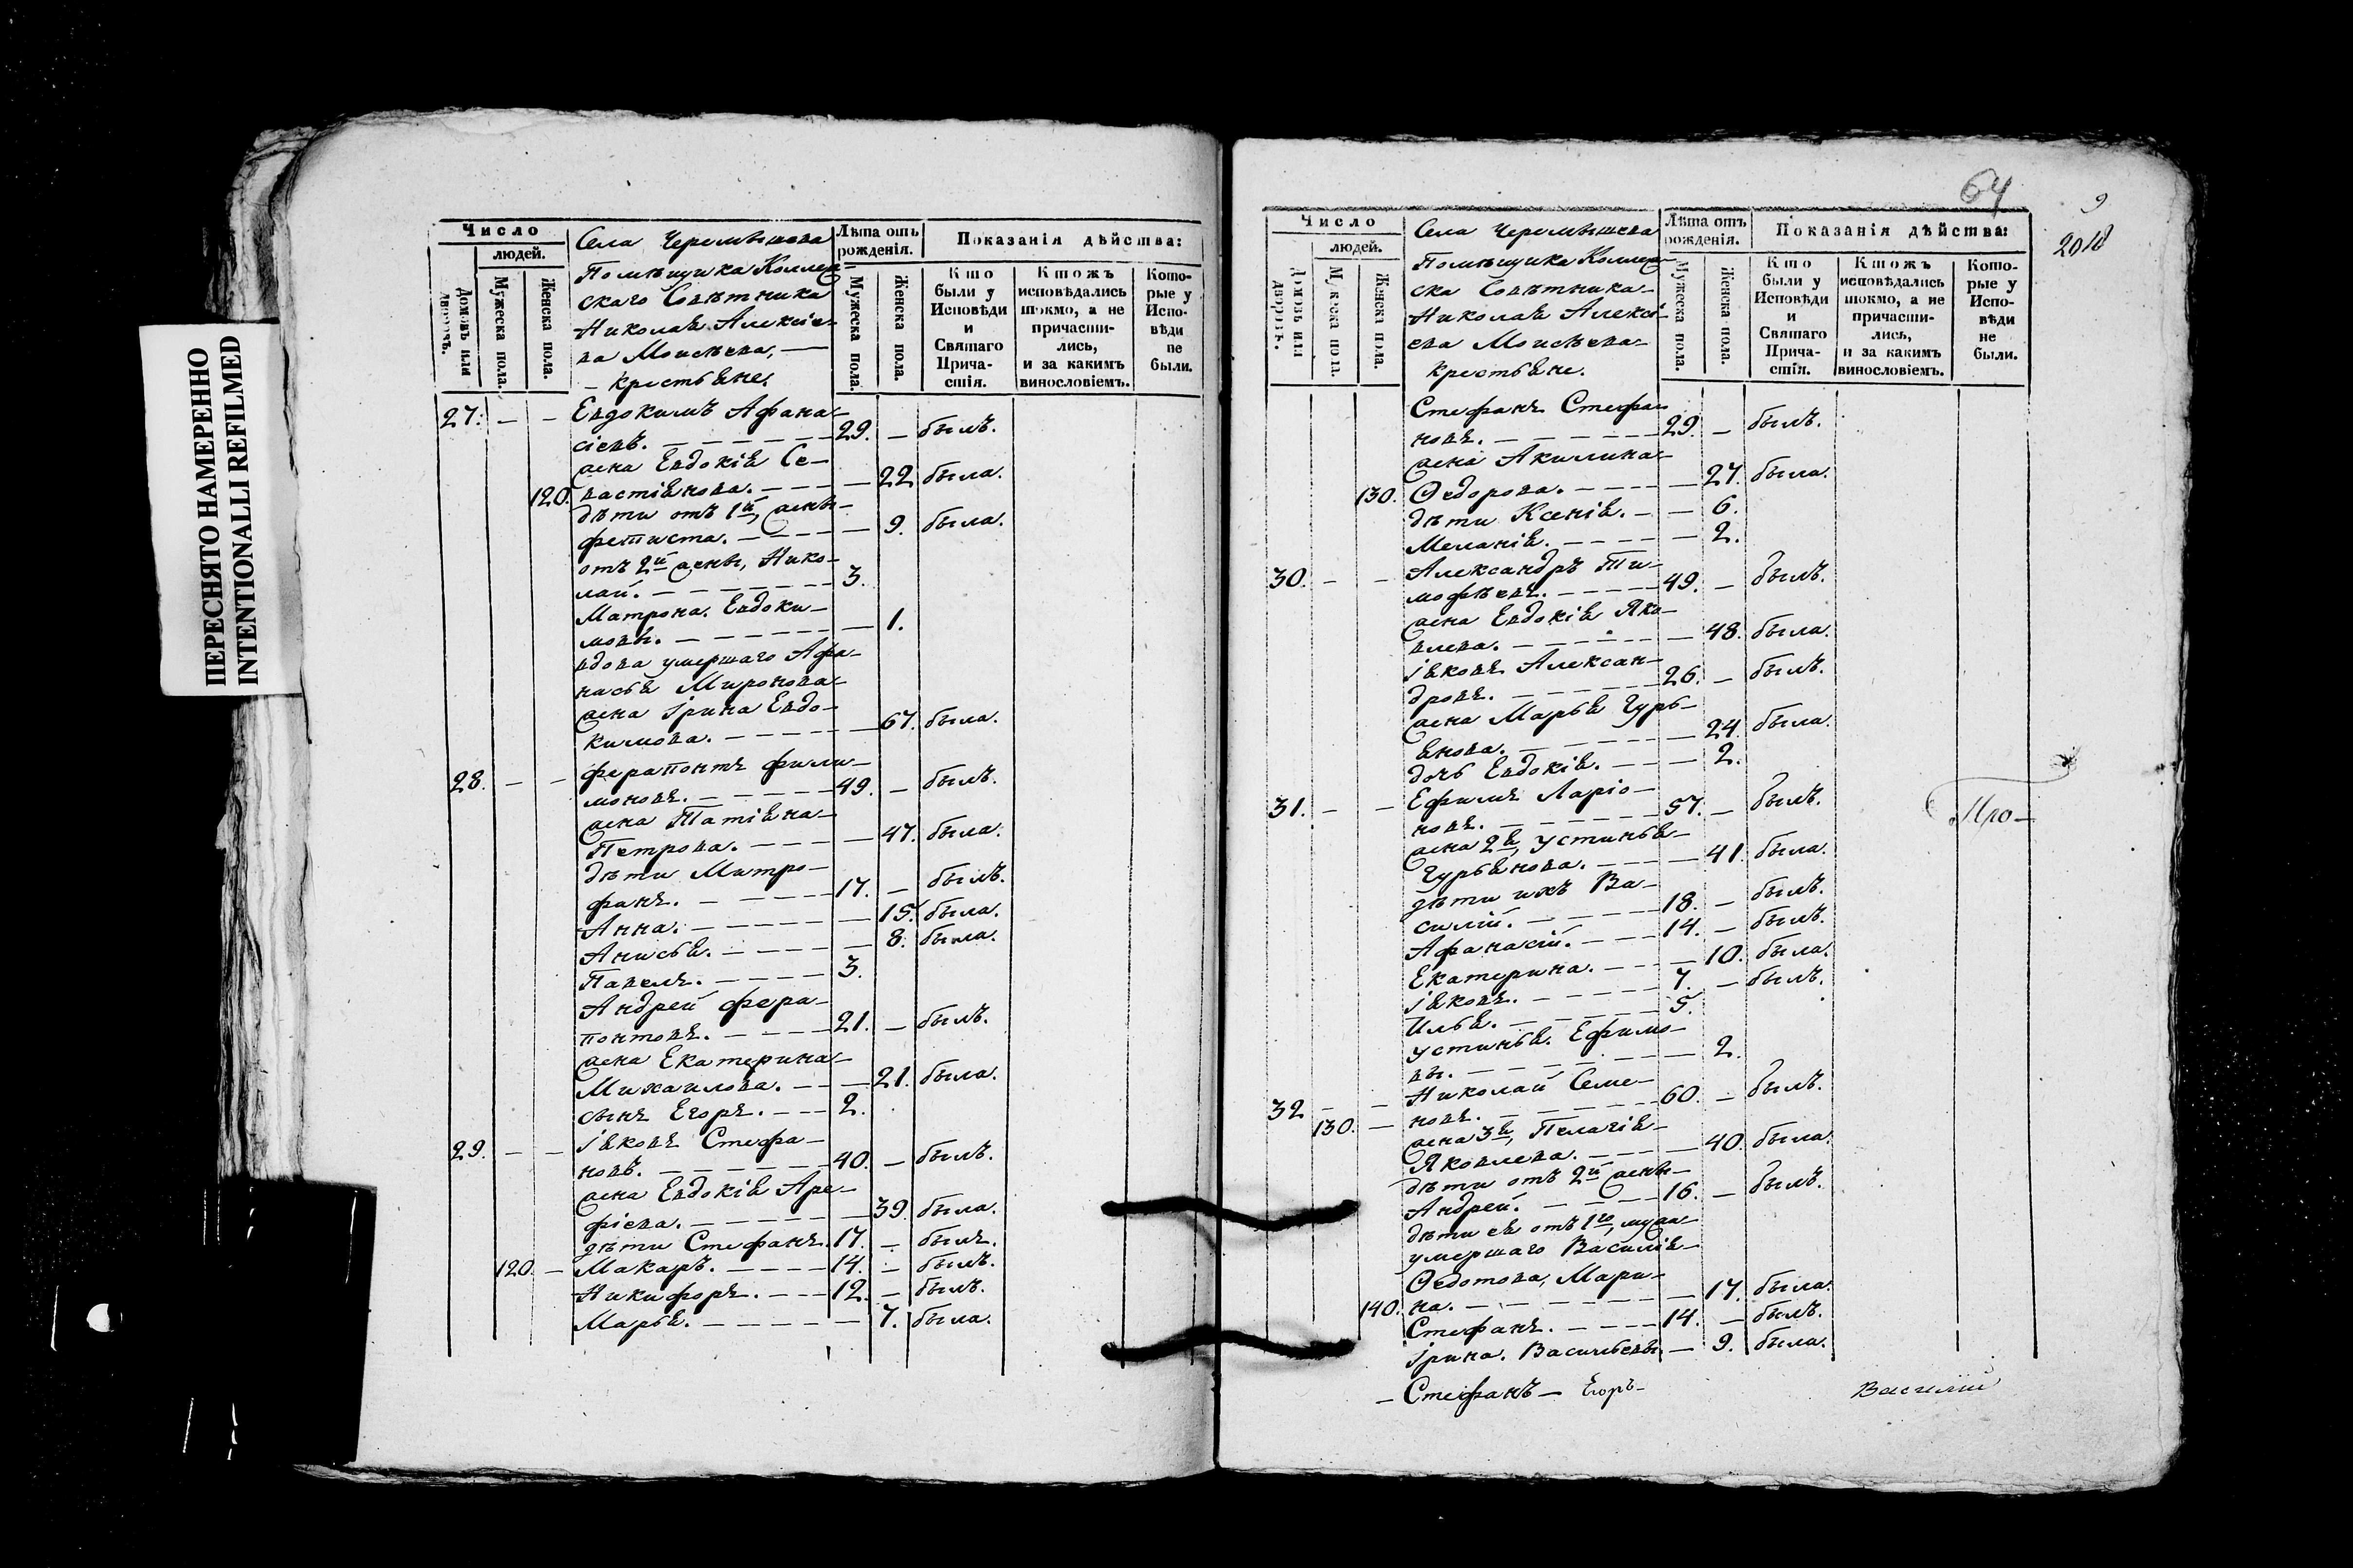 ПЕРЕСНЯТО НАМЕРЕННО
INTENTIONALLI REFILMED
Число
людей.
Домовъ или дворовъ.
Мужеска пола.
Женска пола.
Села Черемышева
Помѣщика Коллеж-
скаго Совѣтника
Николая Алексіе-
ва Моисѣева,
крестьяне.
Лѣта отъ рожденія.
Мужеска пола.
Женска пола.
Показанія дѣйства:
Кто были у Исповѣди и Святаго Прича-стія.
Ктожъ исповѣдались токмо, а не причасти-лись, и за какимъ винословіемъ.
Кото-рые у Испо-вѣди не были.
27. — — Евдокимъ Афана-
сіевъ. 29. — былъ.
жена Евдокія Се-
120. вастіянова. — 22 была.
дѣти отъ 1й, жены
Фетиста. — 9. была.
отъ 2й жены, Нико-
лай. 3.
Матрона. Евдоки-
мовы. — 1.
вдова умершаго Афа-
насья Миронова
жена Ірина Евдо-
кимова. — 67. была.
28. — — Ферапонтъ Фили-
моновъ. 49. — былъ.
жена Татіяна
Петрова. — 47. была.
дѣти Митро-
фанъ. 17. — былъ.
Анна. — 15. была.
Анисья. — 8. была.
Павелъ. 3.
Андрей Фера-
понтовъ. 21. — былъ.
жена Екатерина
Михаилова. — 21. была.
сынъ Егоръ. 2.
29. — — Іяковъ Стефа-
новъ. 40. — былъ.
жена Евдокія Аре-
фіева. — 39. была.
дѣти Стефанъ 17. — былъ.
120. — Макаръ. 14. — былъ.
Никифоръ. 12. — былъ.
Марья. — 7. была.
64
9
2018
Число
людей.
Домовъ или дворовъ.
Мужеска пола.
Женска пола.
Села Черемышева
Помѣщика Коллеж-
ска Совѣтника
Николая Алексі-
ева Моисѣева
крестьяне.
Лѣта отъ рожденія.
Мужеска пола.
Женска пола.
Показанія дѣйства:
Кто были у Исповѣди и Святаго Прича-стія.
Ктожъ исповѣдались токмо, а не причасти-лись, и за какимъ винословіемъ.
Кото-рые у Испо-вѣди не были.
Стефанъ Стефа-
новъ. 29. — былъ.
жена Акилина
130. Ѳедорова. — 27. была.
дѣти Ксенія. — 6.
Меланія. — 2.
30. — — Александръ Ти-
мофѣевъ. 49. — былъ.
жена Евдокія Яко-
влева. — 48. была.
Іяковъ Алексан-
дровъ. 26. — былъ.
жена Марья Гурь-
янова. — 24. была.
дочь Евдокія. — 2.
31. — — Ефимъ Ларіо-
новъ. 57. — былъ.
жена 2я, Устинья
Гурьянова. — 41. была.
дѣти ихъ Ва-
силій. 18. — былъ.
Афанасій. 14. — былъ.
Екатерина. — 10. была.
Іяковъ. 7. — былъ.
Илья. 5.
Устинья. Ефимо-
вы. — 2.
32 — — Николай Семе-
130. — новъ. 60. — былъ.
жена 3я, Пелагія
Яковлева. — 40. была.
дѣти отъ 2й жены
Андрей. 16. — былъ.
дѣти ея отъ 1го, мужа
умершаго Василія
Ѳедотова, Мари-
140. на. — 17. была.
Стефанъ. 14. — былъ.
Ірина. Васильевы — 9. была.
Про-
— Стефанъ — Егоръ — Василій